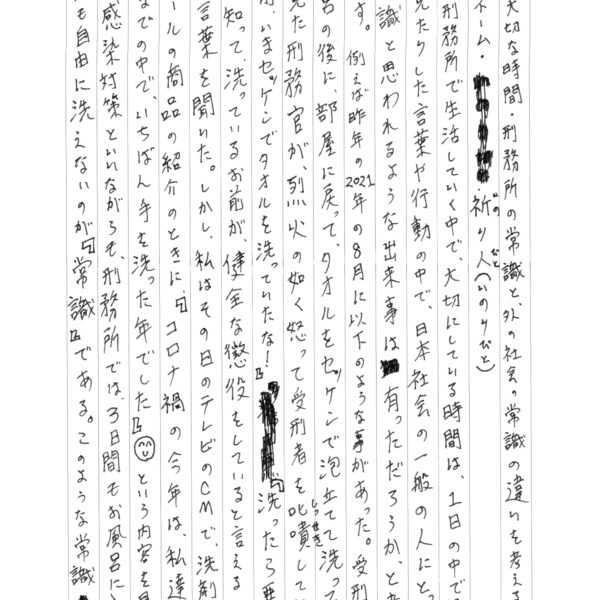 大切な時間・刑務所の常識と、外の社会の常識の違いを考える
ネーム・祈り人(いのりびと)
刑務所で生活していく中で、大切にしている時間は、1日の中で
見たりした言葉や行動の中で、日本社会の一般の人にと
識と思われるような出来事は有っただろうか、と
す。例えば昨年の2021年の8月に以下のような事があった。受刑
呂の後に、部屋に戻って、タオルをセッケンで泡立てて洗って
見た刑務官が、烈火の如く怒って受刑者を叱嘖して
が、いまセッケンでタオルを洗っていたな!』『洗ったら悪
知って、洗っているお前が、健全な懲役をしていると言える
言葉を聞いた。しかし、私はその日のテレビのCMで、洗剤
ールの商品の紹介のときに、『コロナ禍の今年は、私達
までの中で、いちばん手を洗った年でした』という内容を見
感染対策といいながらも、刑務所では、3日間もお風呂に
も自由に洗えないのが『常識』である。このような常識